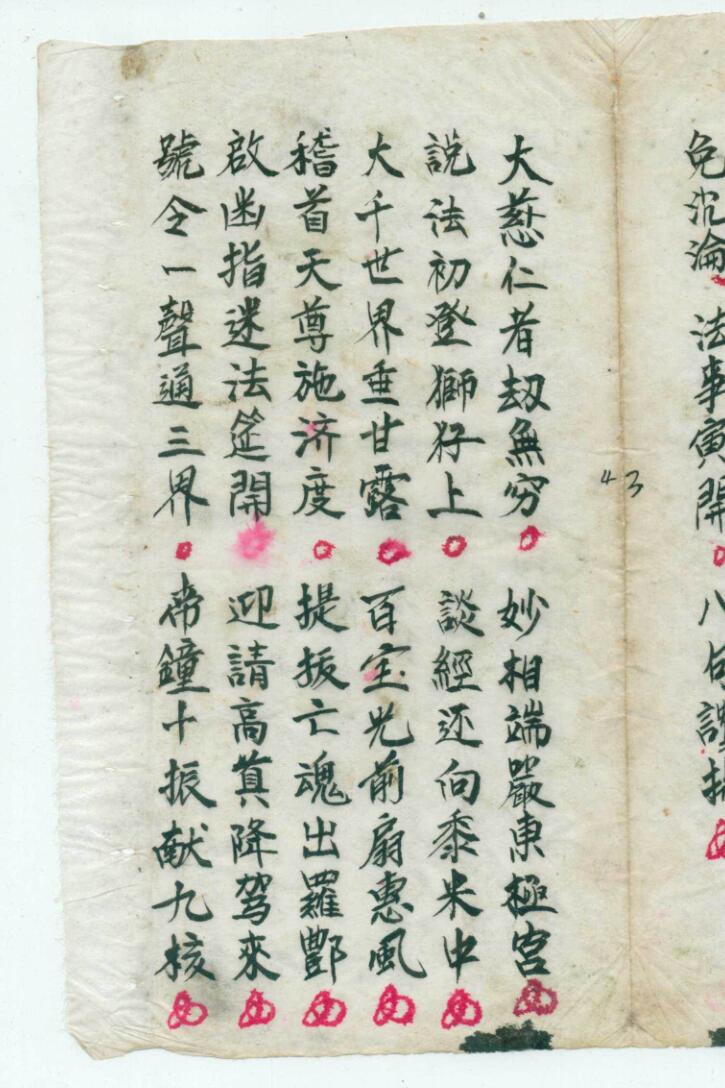 免沉淪 法事寅開 八句
43
大慈仁者劫無穷 妙相端嚴東極宮
説法初登獅狞上 談經还向黍米中
大千世界垂甘露 百宝光前扇惠風
稽首天尊施济度 提拔亡魂出羅酆
啟函指迷法筵開 迎請高真降驾來
號令一聲通三界 帝鐘十振献九核